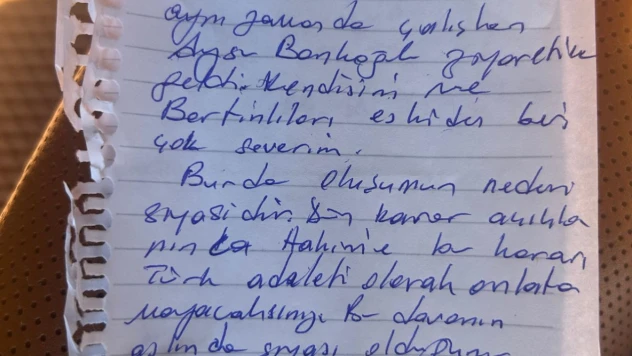 aynı zamanda çalışkan
Ayşu Bankoğlu ziyaretime
geldi. Kendisini ve
Bartınlıları eskiden beri
çok severim.
Burda oluşumun nedeni
siyasidir. Son karar açıkla
nınca hakime bu kararı
Türk adaleti olarak anlata
mayacaksınız bu davanın
aslında siyasi olduğunu